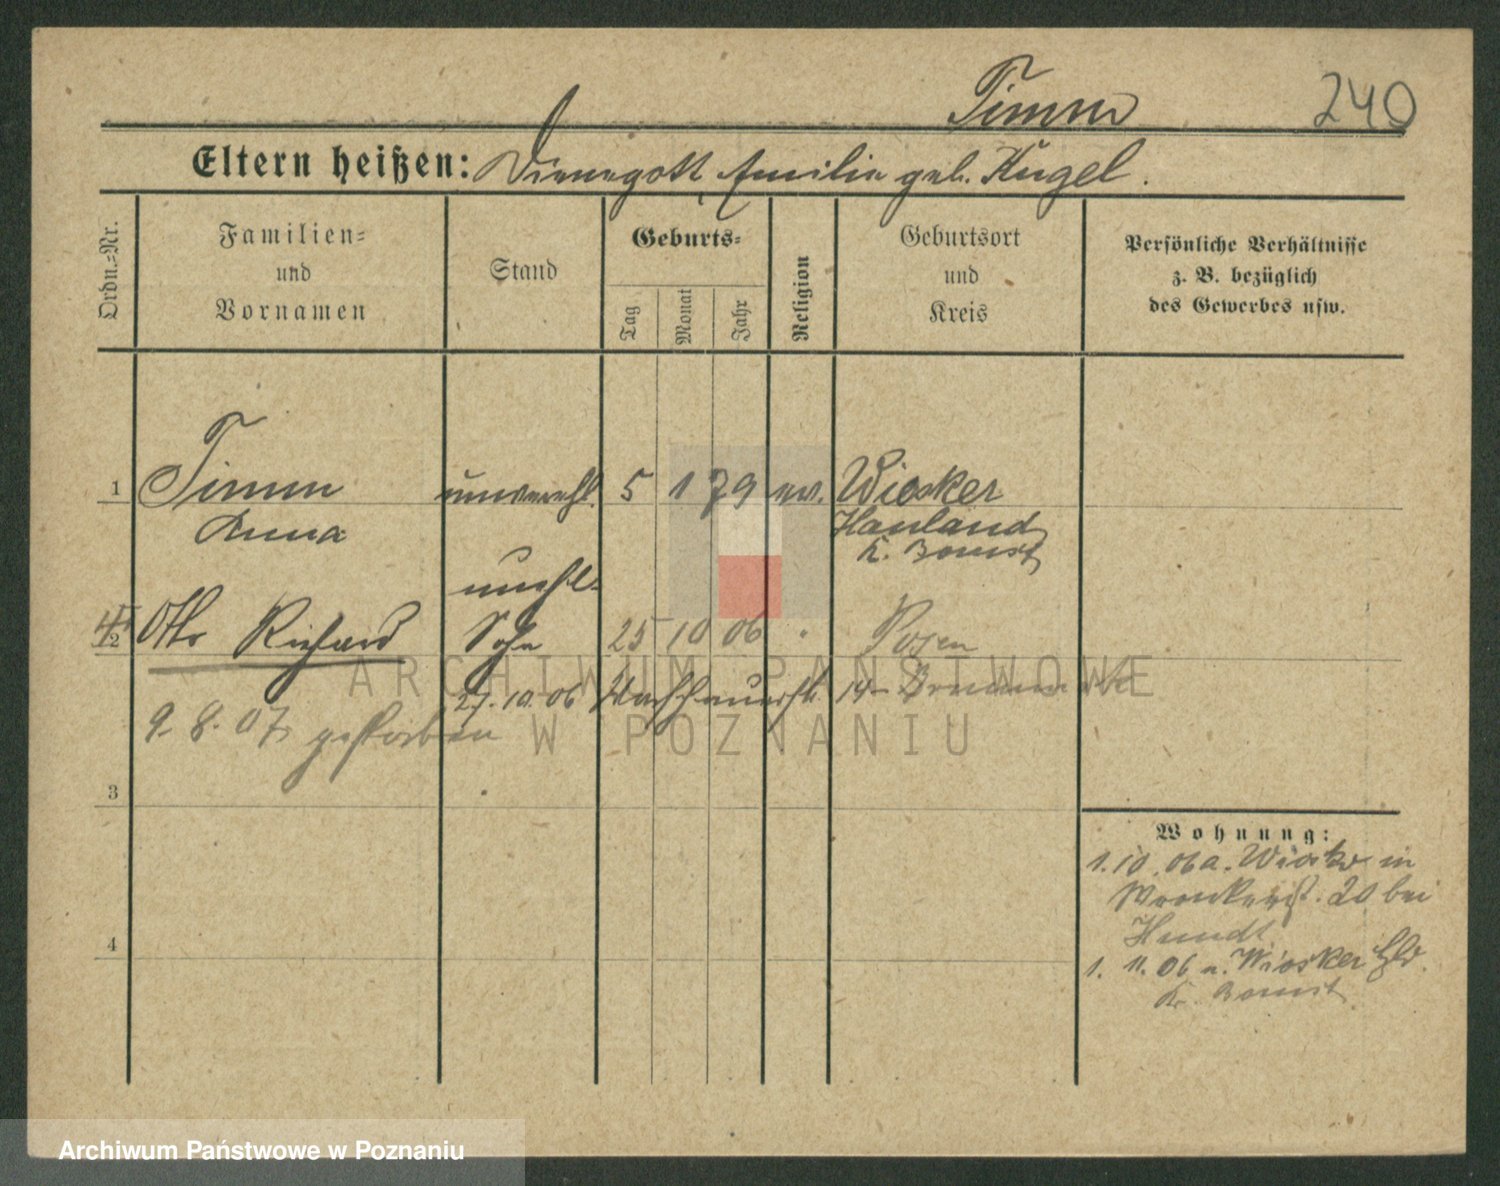 Timm 240
Eltern heißen: Dienegott, Emilie geb. Kugel.
Ordn.-Nr.
Familien- und Vornamen
Stand
Geburts-
Tag
Monat
Jahr
Religion
Geburtsort und Kreis
Persönliche Verhältnisse
z. B. bezüglich
des Gewerbes usw.
1 Timm unverehl. 5 1 79 ev. Wiosker
Anna Hauland
K. Bomst
unehl.
2 Otto Richard Sohn 25 10 06 Posen
27. 10. 06 14
9. 8. 07 gestorben
3
Wohnung:
1. 10. 06 a. Wioske in
Wronkerst. 20 bei
Hundt
4
1. 11. 06 n. Wiosker Hld.
Kr. Bomst
ARCHIWUM PAŃSTWOWE
W POZNANIU
Archiwum Państwowe w Poznaniu